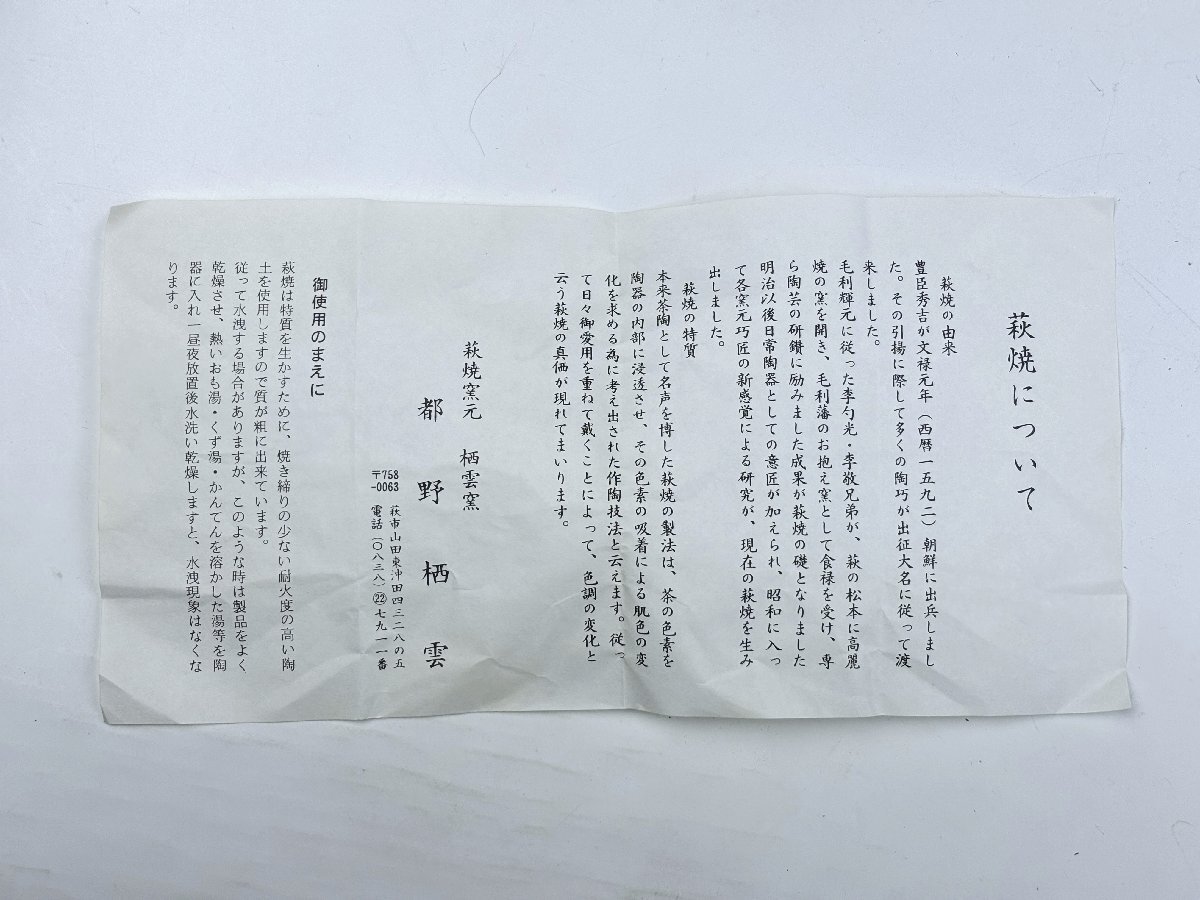 萩焼について
萩焼の由来
豊臣秀吉が文禄元年（西暦一五九二）朝鮮に出兵しまし
た。その引揚に際して多くの陶巧が出征大名に従って渡
来しました。
毛利輝元に従った李勺光・李敬兄弟が、萩の松本に高麗
焼の窯を開き、毛利藩のお抱え窯として食禄を受け、専
ら陶芸の研鑽に励みました成果が萩焼の礎となりました
明治以後日常陶器としての意匠が加えられ、昭和に入っ
て各窯元巧匠の新感覚による研究が、現在の萩焼を生み
出しました。
萩焼の特質
本来茶陶として名声を博した萩焼の製法は、茶の色素を
陶器の内部に浸透させ、その色素の吸着による肌色の変
化を求める為に考え出された作陶技法と云えます。従っ
て日々御愛用を重ねて戴くことによって、色調の変化と
云う萩焼の真価が現れてまいります。
萩焼窯元　栖雲窯
都野栖雲
〒758-0063　萩市山田東沖田四三二八の五
電話（〇八三八）㉒七九一一番
御使用のまえに
萩焼は特質を生かすために、焼き締りの少ない耐火度の高い陶
土を使用しますので質が粗に出来ています。
従って水洩する場合がありますが、このような時は製品をよく
乾燥させ、熱いおも湯・くず湯・かんてんを溶かした湯等を陶
器に入れ一昼夜放置後水洗い乾燥しますと、水洩現象はなくな
ります。